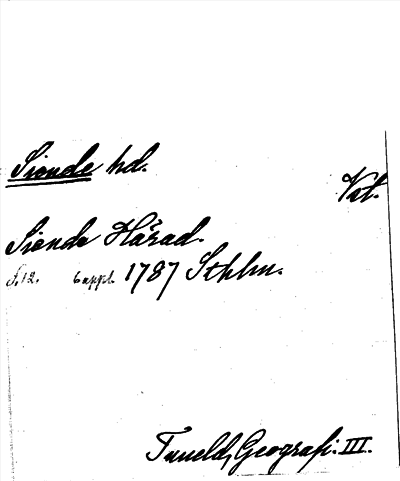 Siende hd.
Vstm.
Siende Härad.
S. 12. 6 uppl. 1787 Sthlm.
Tuneld, Geografi. III.